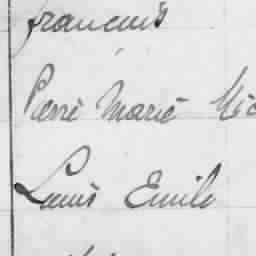 francois
Pierre Marie
Louis Emile